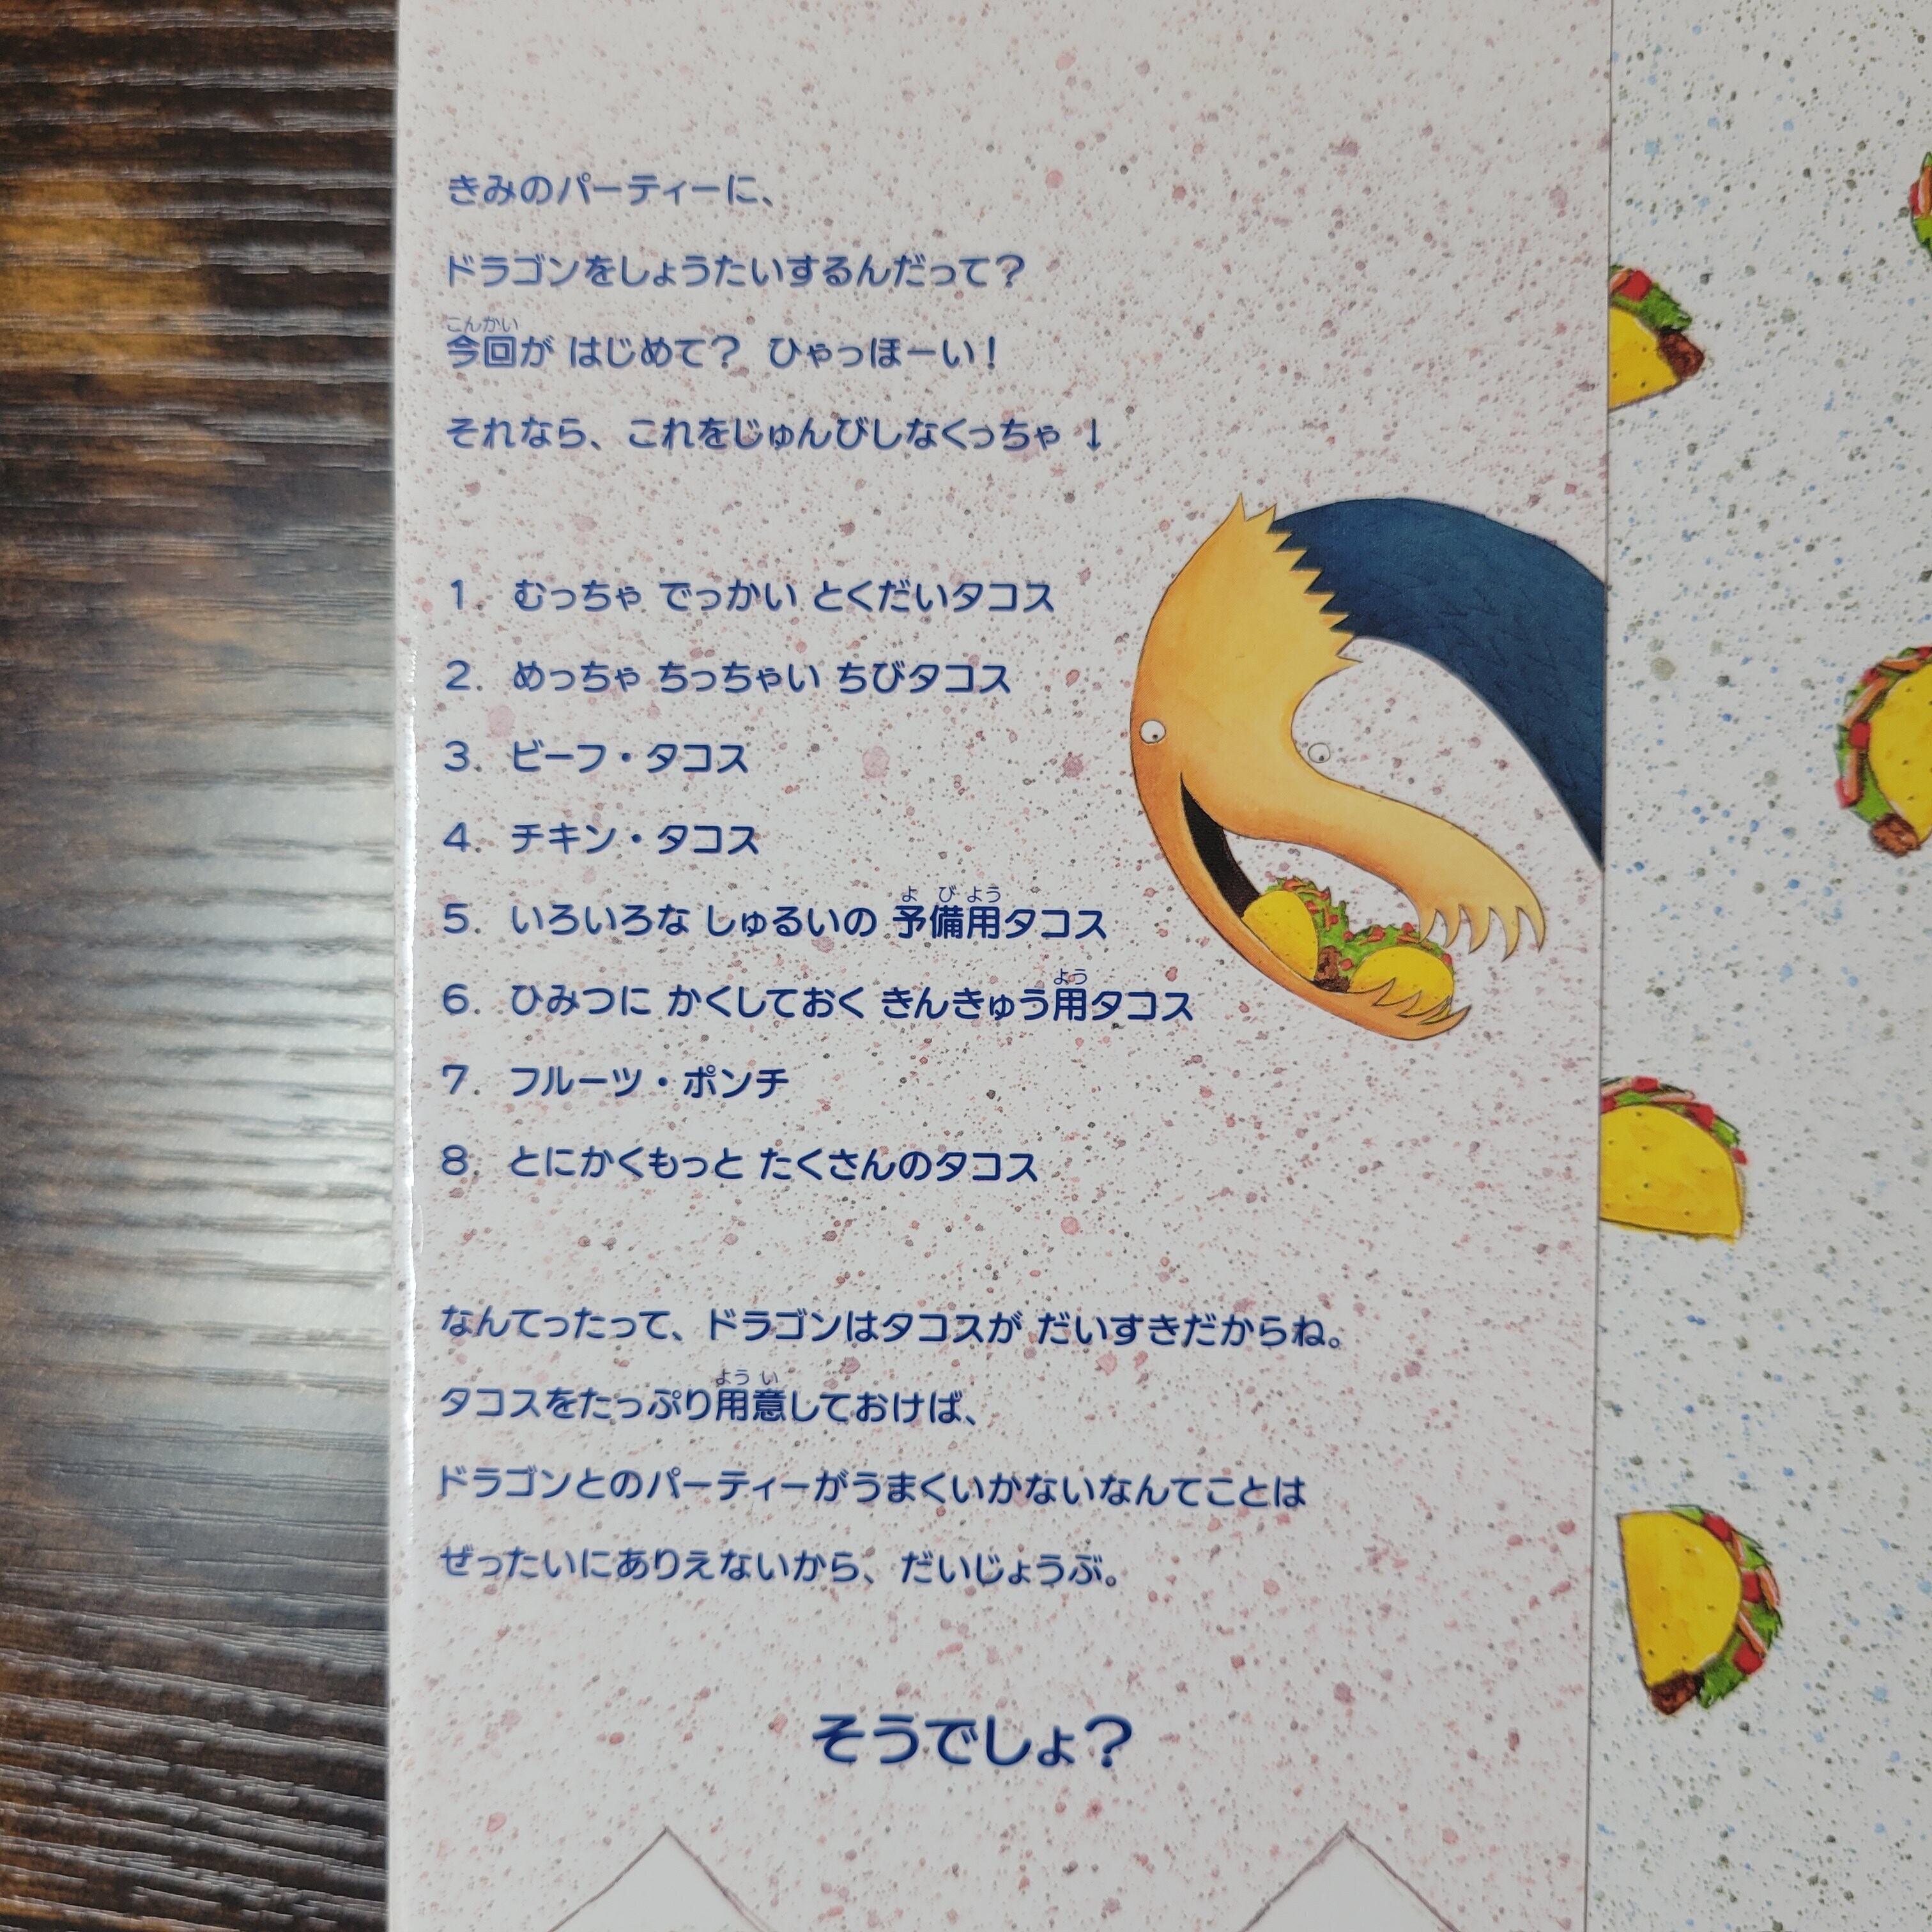 きみのパーティーに、
ドラゴンをしょうたいするんだって？
こんかい
今回が はじめて？ ひゃっほーい！
それなら、これをじゅんびしなくっちゃ ↓
1. むっちゃ でっかい とくだいタコス
2. めっちゃ ちっちゃい ちびタコス
3. ビーフ・タコス
4. チキン・タコス
よ び よう
5. いろいろな しゅるいの 予備用タコス
よう
6. ひみつに かくしておく きんきゅう用タコス
7. フルーツ・ポンチ
8. とにかくもっと たくさんのタコス
なんてったって、ドラゴンはタコスが だいすきだからね。
よう い
タコスをたっぷり用意しておけば、
ドラゴンとのパーティーがうまくいかないなんてことは
ぜったいにありえないから、だいじょうぶ。
そうでしょ？